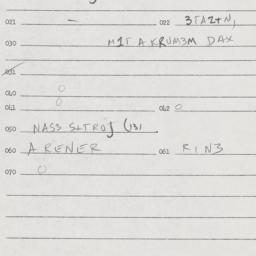 021 — 022 3TAZTN,
030 M1T A KRUM3M DAX
031
040 0
041 0 042 0
050 NASS S+TROJ (131
060 A RENER 061 RIN3
070 0